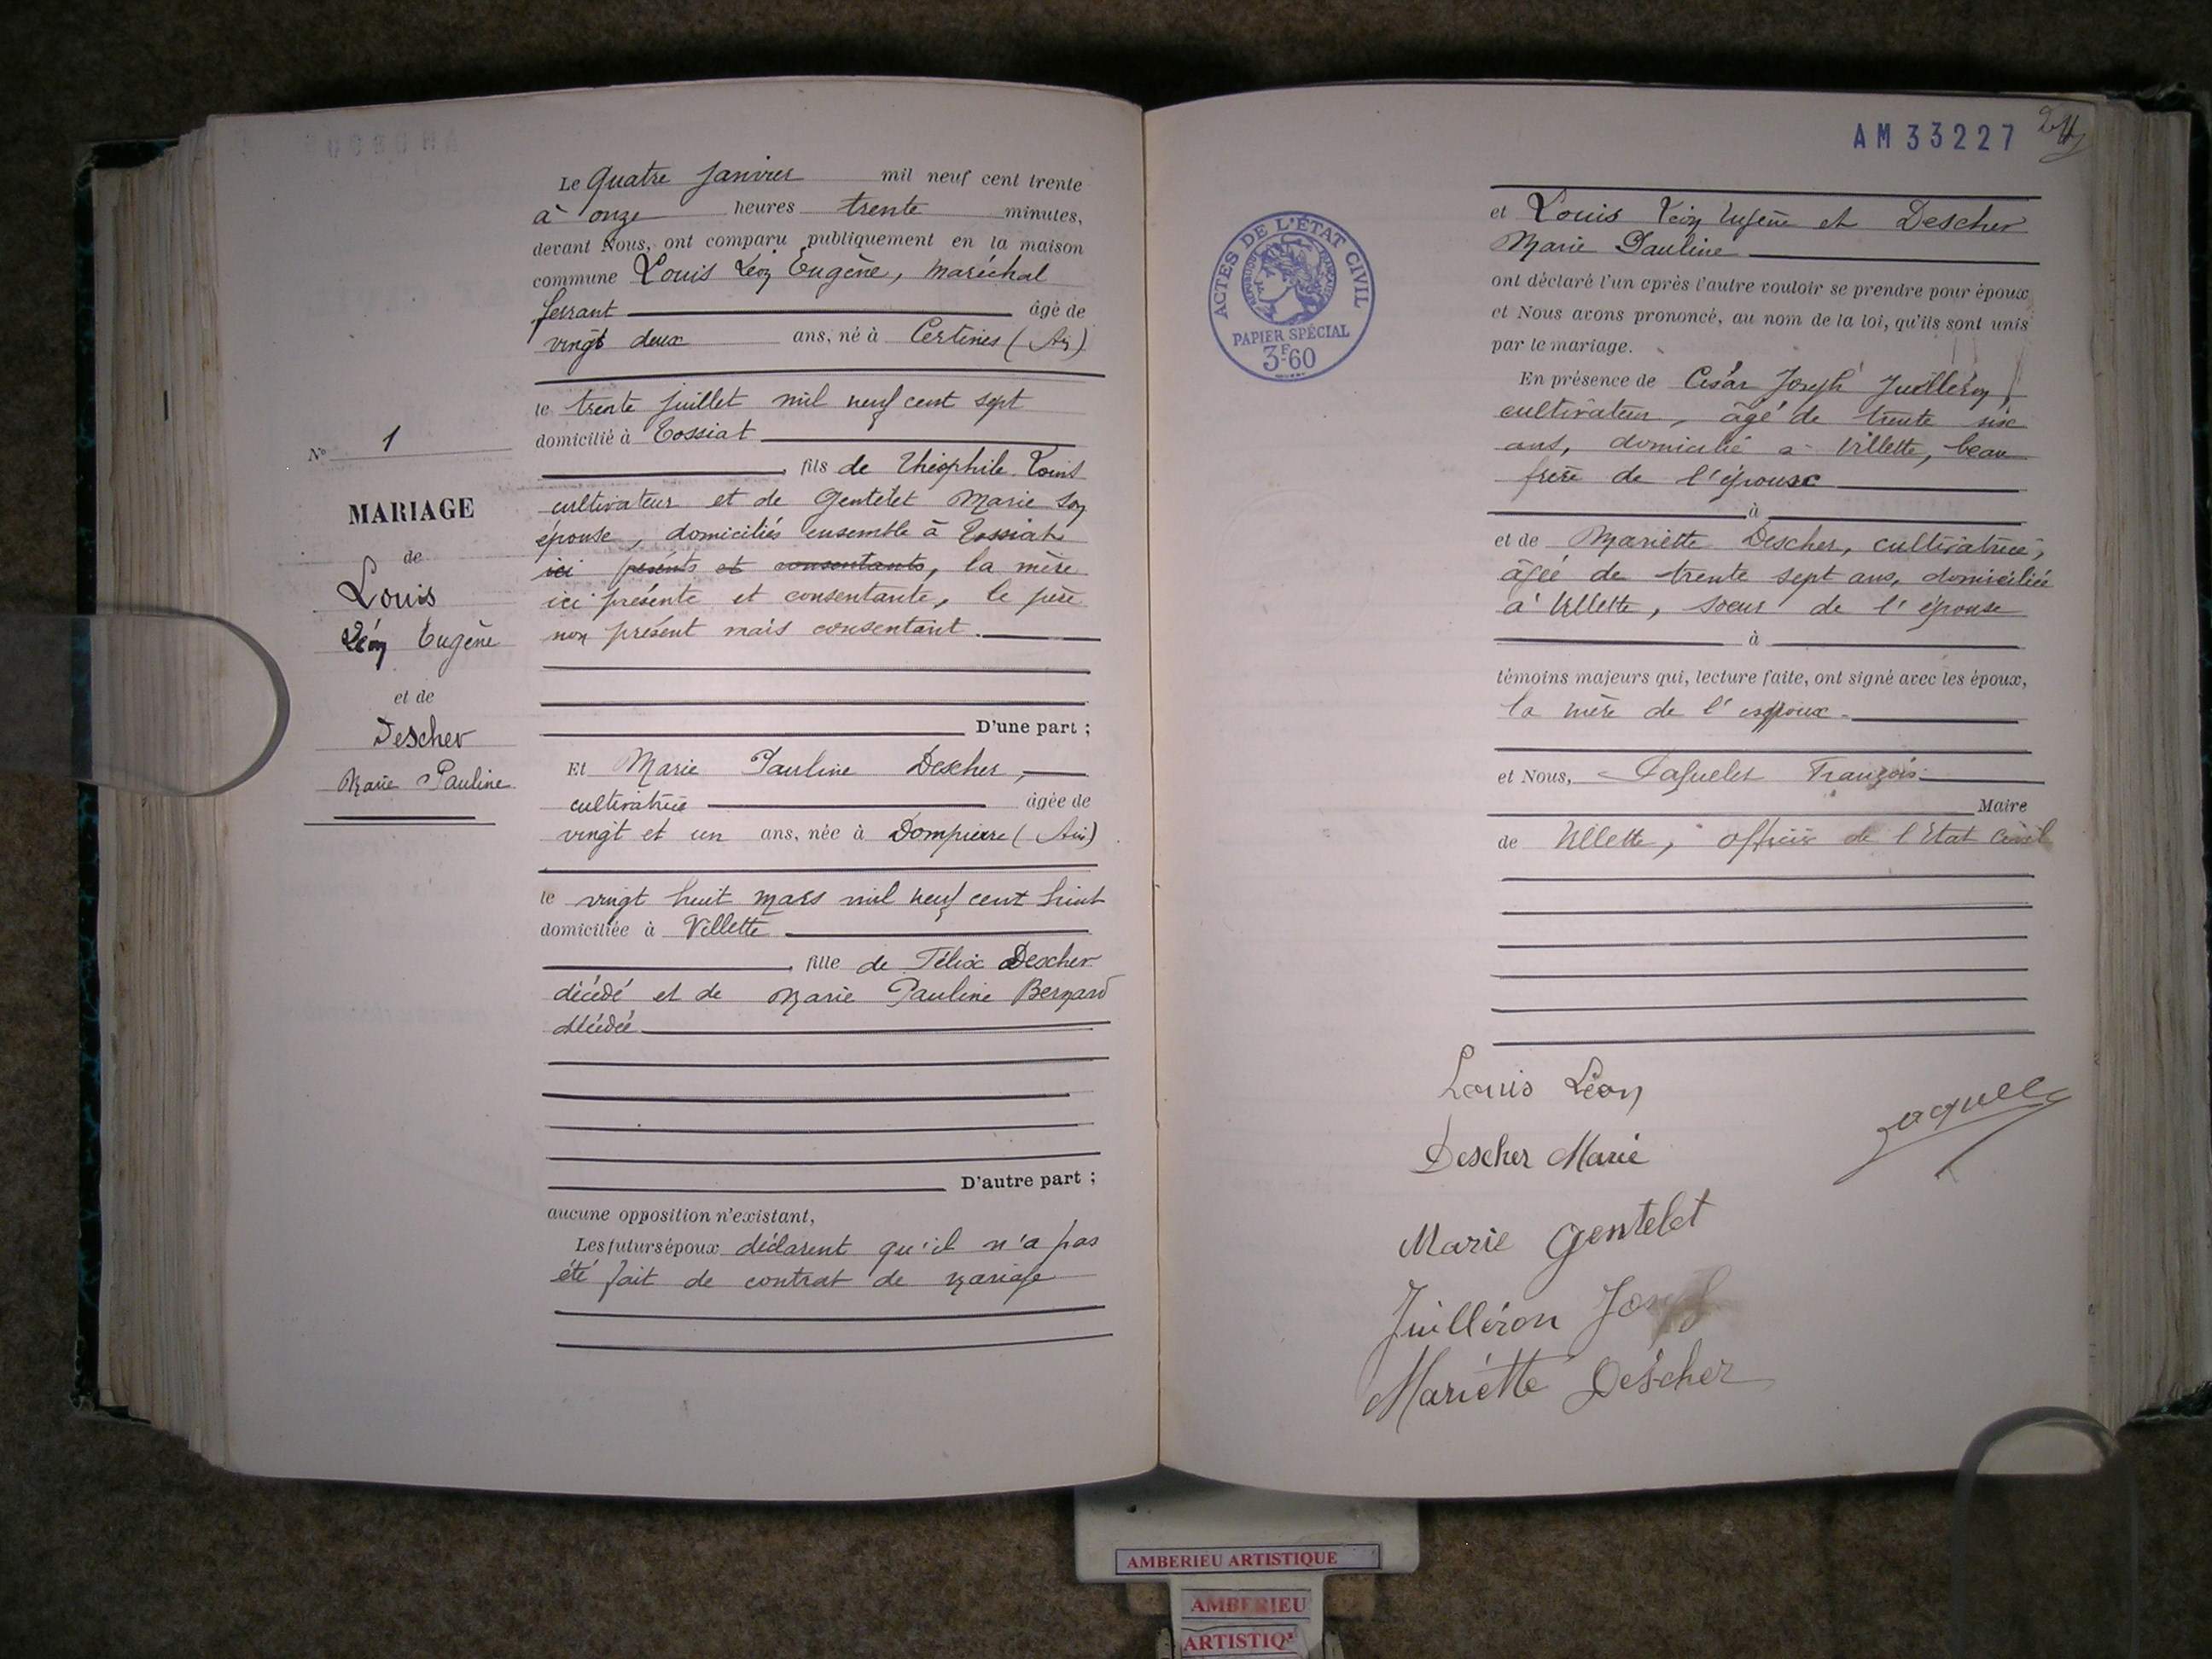 Le Quatre Janvier mil neuf cent trente
à onze heures trente minutes,
devant Nous, ont comparu publiquement en la maison
commune Louis Léon Eugène, maréchal
ferrant âgé de
vingt deux ans, né à Certines (Ain)
le trente juillet mil neuf cent sept
domicilié à Tossiat
, fils de Théophile Louis
cultivateur et de Gentelet Marie son
épouse, domiciliés ensemble à Tossiat
ici présents et consentants, la mère
ici présente et consentante, le père
non présent mais consentant.
D'une part ;
Et Marie Pauline Descher,
cultivatrice âgée de
vingt et un ans, née à Dompierre (Ain)
le vingt huit mars mil neuf cent huit
domiciliée à Villette
, fille de Félix Descher
décédé et de Marie Pauline Bernard
décédée
D'autre part ;
aucune opposition n'existant,
Les futurs époux déclarent qu'il n'a pas
été fait de contrat de mariage
No 1
MARIAGE
de
Louis
Léon Eugène
et de
Descher
Marie Pauline
AM33227
ACTES DE L'ÉTAT CIVIL
RÉPUBLIQUE FRANÇAISE
PAPIER SPÉCIAL
3F60
et Louis Léon Eugène et Descher
Marie Pauline
ont déclaré l'un après l'autre vouloir se prendre pour époux
et Nous avons prononcé, au nom de la loi, qu'ils sont unis
par le mariage.
En présence de César Joseph Juilléron
cultivateur, âgé de trente six
ans, domicilié à Villette, beau
frère de l'épouse
à
et de Mariette Descher, cultivatrice,
âgée de trente sept ans, domiciliée
à Villette, soeur de l'épouse
à
témoins majeurs qui, lecture faite, ont signé avec les époux,
la mère de l'époux.
et Nous, François
Maire
de Villette, officier de l'Etat Civil
Louis Léon
Descher Marie
Marie Gentelet
Juilléron Joseph
Mariette Descher
AMBERIEU ARTISTIQUE
AMBERIEU
ARTISTIQ